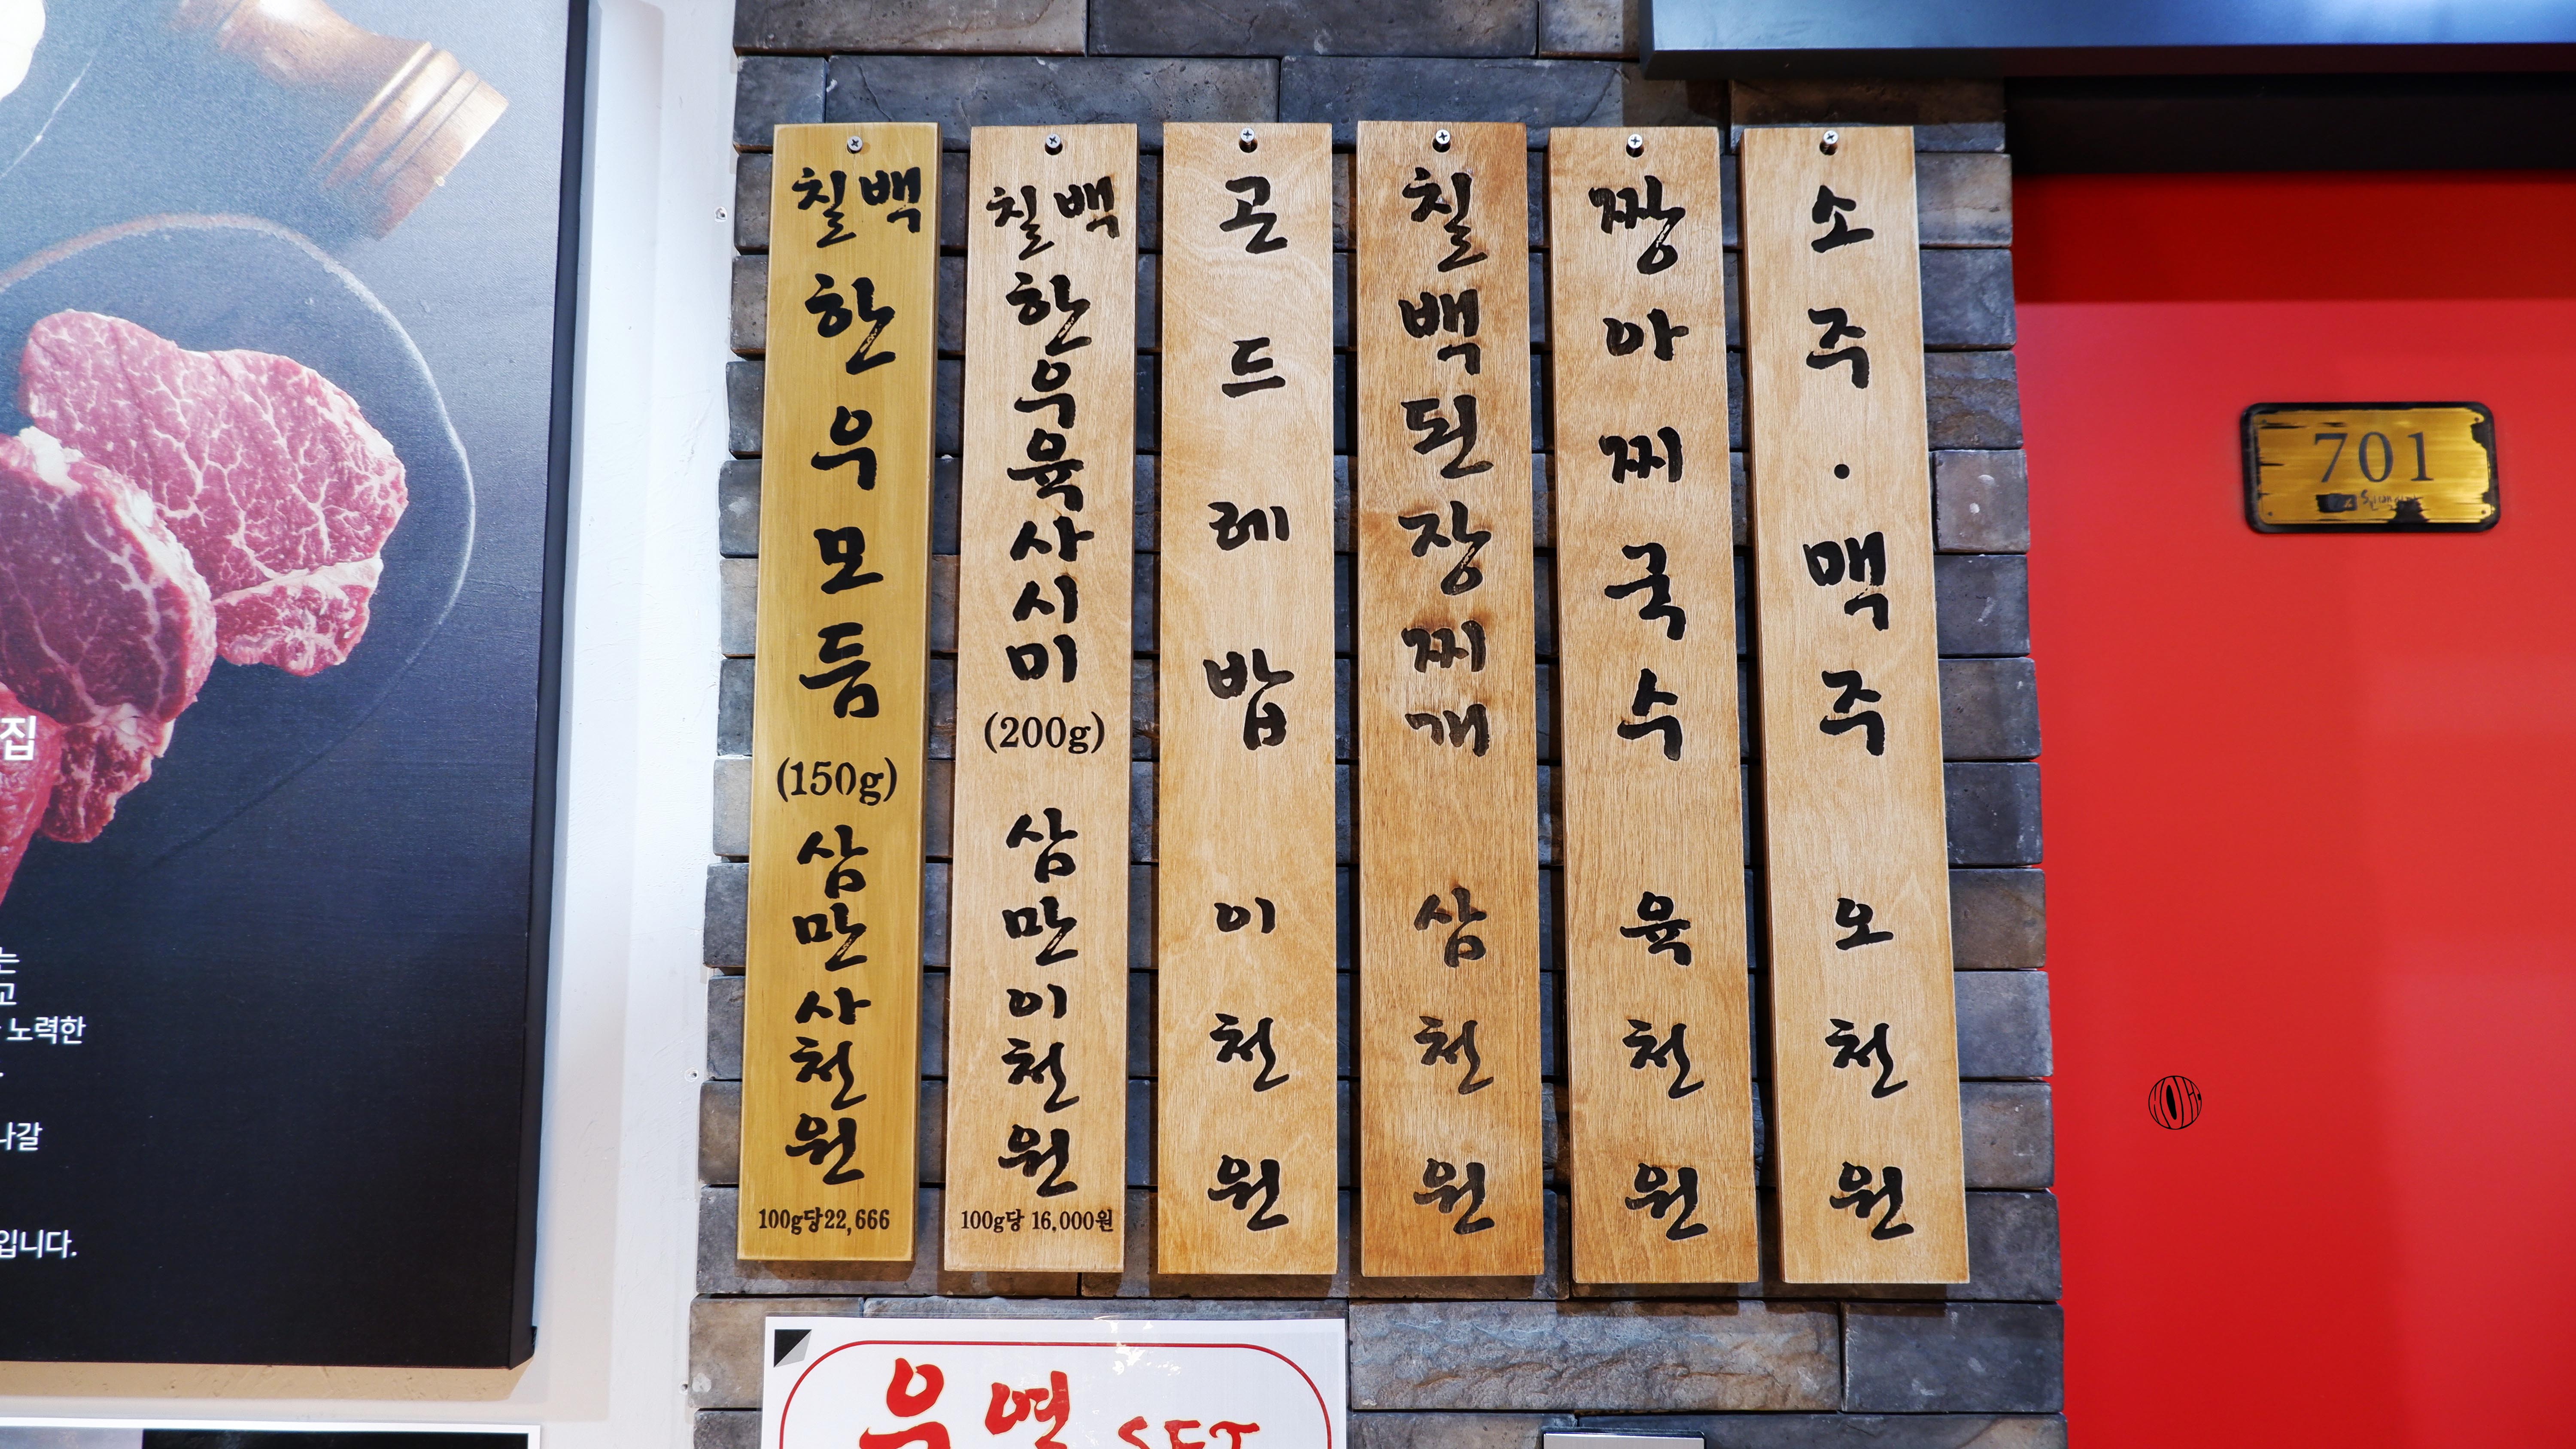 집
는
고
노력한
나갈
입니다.
칠백
한우모둠
(150g)
삼만사천원
100g당22,666
칠백
한우육사시미
(200g)
삼만이천원
100g당 16,000원
곤드레밥
이천원
칠백된장찌개
삼천원
짱아찌국수
육천원
소주·맥주
오천원
701
우열 SET